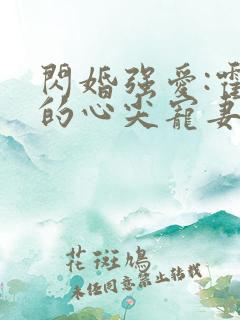 閃婚强愛:霍
的心尖寵妻
花斑鳩
未经同意禁止转载